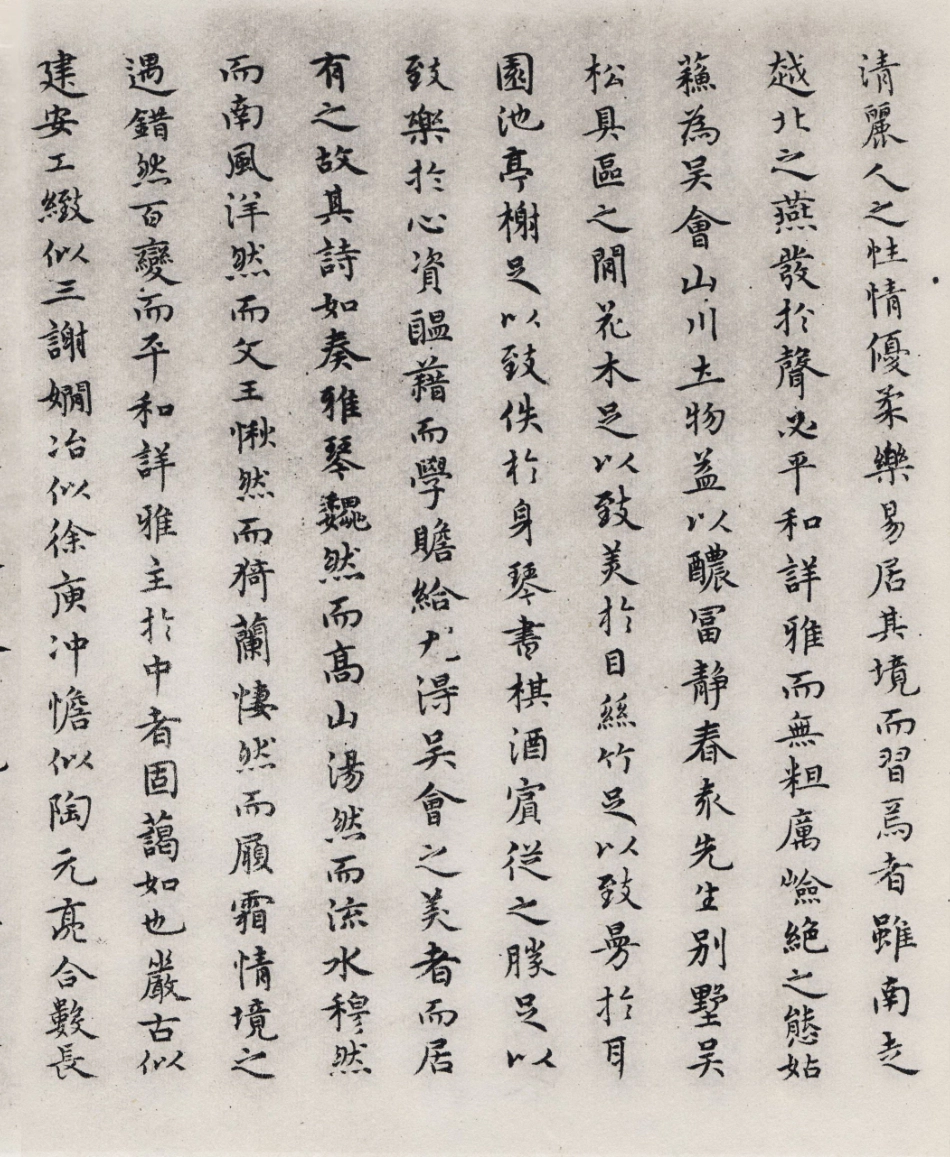 清麗人之性情優柔樂易居其境而習焉者雖南走
越北之燕發於聲必平和詳雅而無粗厲嶮絶之態姑
蘓為吳會山川土物益以醲冨靜春袁先生别墅吳
松具區之間花木足以致美扵目絲竹足以致曼扵耳
園池亭榭足以致佚扵身琴書棋酒賓從之勝足以
致樂扵心資醞藉而學贍給尤淂吳會之美者而居
有之故其詩如奏雅琴巍然而髙山湯然而流水穆然
而南風洋然而文王愀然而猗蘭悽然而履霜情境之
遇錯然百變而平和詳雅主扵中者固藹如也嚴古似
建安工緻似三謝嫺冶似徐庾冲憺似陶元亮合數長